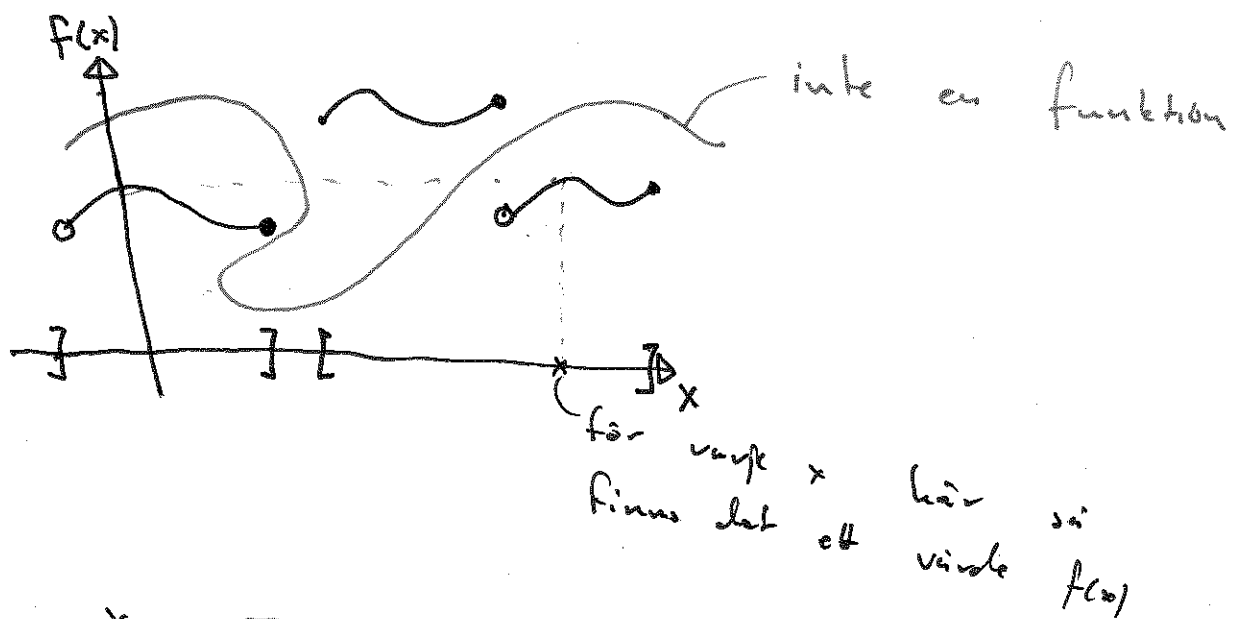 f(x)
inte en funktion
x
för varje x här så
finns det ett värde f(x)